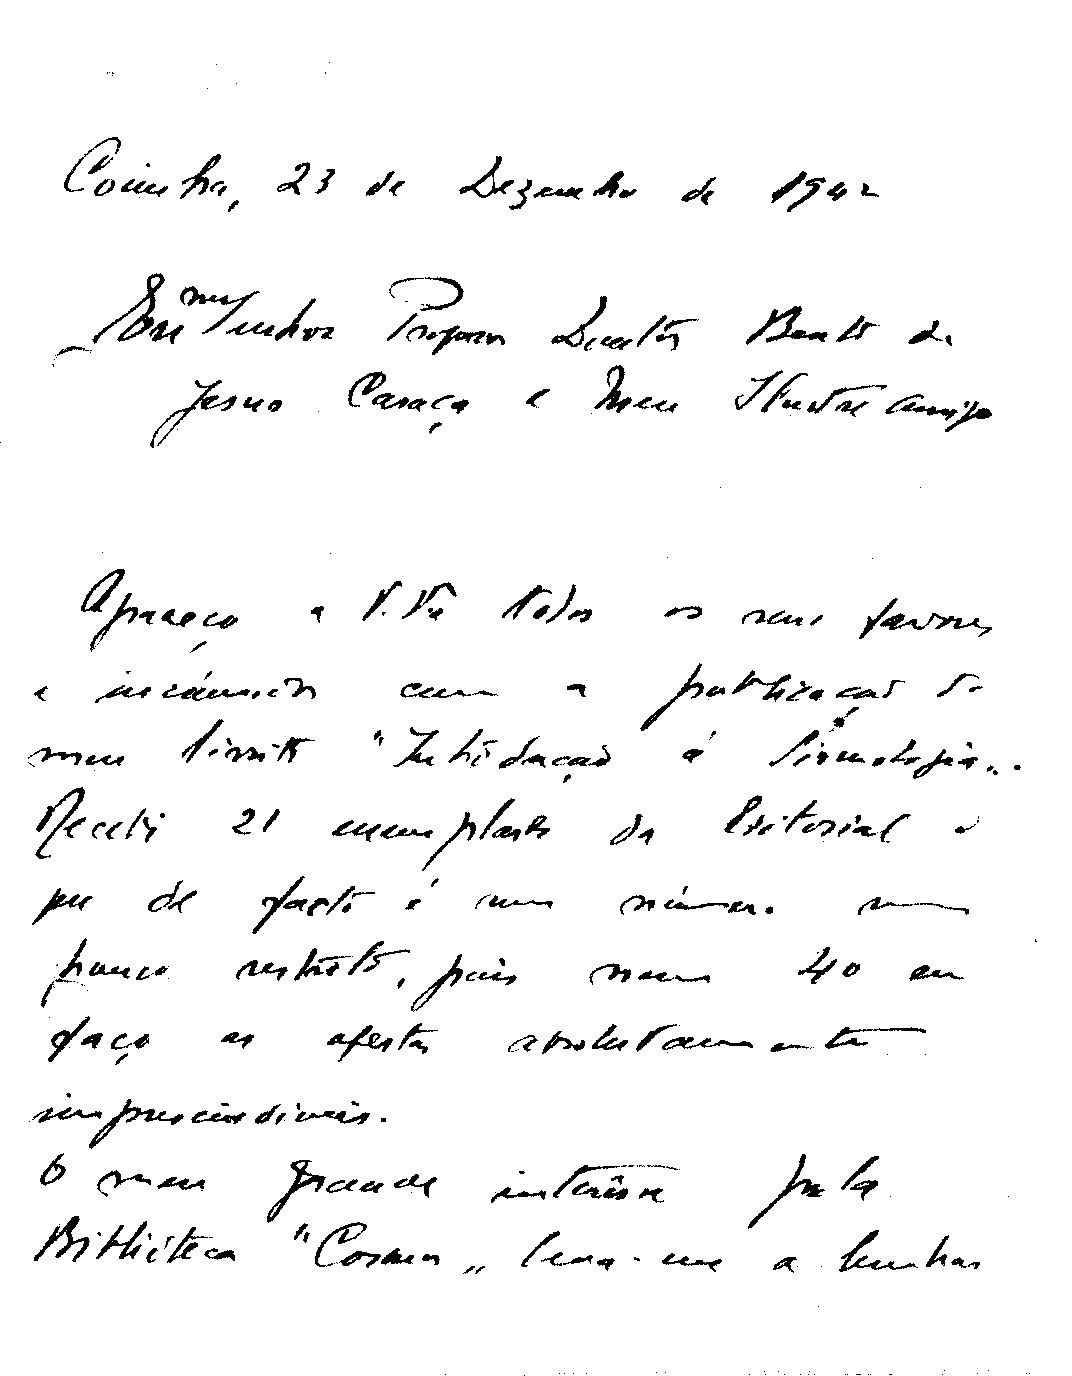 Coimbra, 23 de Dezembro de 1942
Exmo Senhor Professor Doutor Bento de
Jesus Caraça e Meu Ilustre Amigo
Agradeço a V. Exa todos os seus favores
e incómodos com a publicação do
meu livrito "Introdução á Sismologia".
Recebi 21 exemplares da Editorial o
que de facto é um número um
pouco restrito, pois nem 40 eu
faço as ofertas absolutamente
imprescindiveis.
O meu grande interêsse pela
Biblioteca "Cosmos" leva-me a lembrar